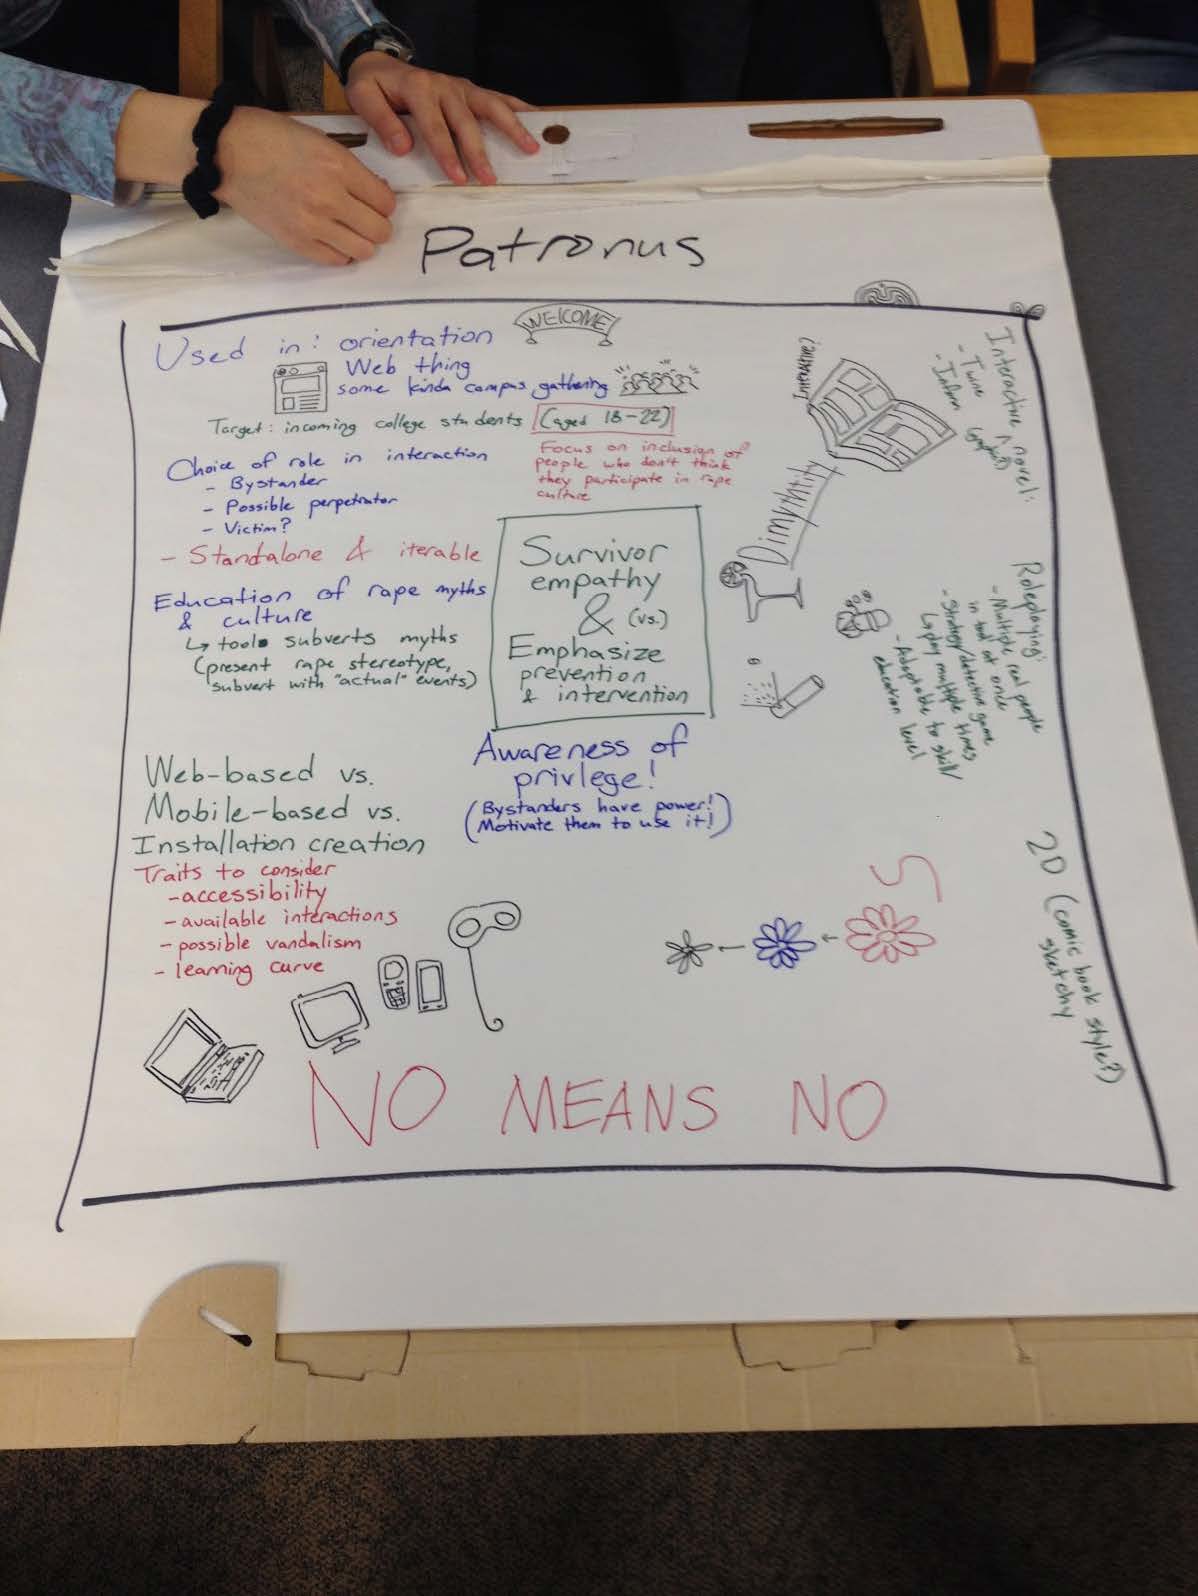 Patronus
WELCOME
Used in: orientation
Web thing
some kinda campus gathering
Target: incoming college students (aged 18-22)
Focus on inclusion of
people who don't think
they participate in rape
culture
Choice of role in interaction
- Bystander
- Possible perpetrator
- Victim?
- Standalone & iterable
Education of rape myths
& culture
↳ tool subverts myths
(present rape stereotype,
subvert with "actual" events)
Survivor
empathy
& (vs.)
Emphasize
prevention
& intervention
Awareness of
privlege!
(Bystanders have power!
Motivate them to use it!)
Web-based vs.
Mobile-based vs.
Installation creation
Traits to consider
- accessibility
- available interactions
- possible vandalism
- learning curve
NO MEANS NO
Dimythtify
Interactive novel:
- Twine
- Inform
Roleplaying:
- Multiple real people
in tool at once
- Strategy/detective game
↳ play multiple times
- Adaptable to skill/
education level
2D (comic book style?)
sketchy